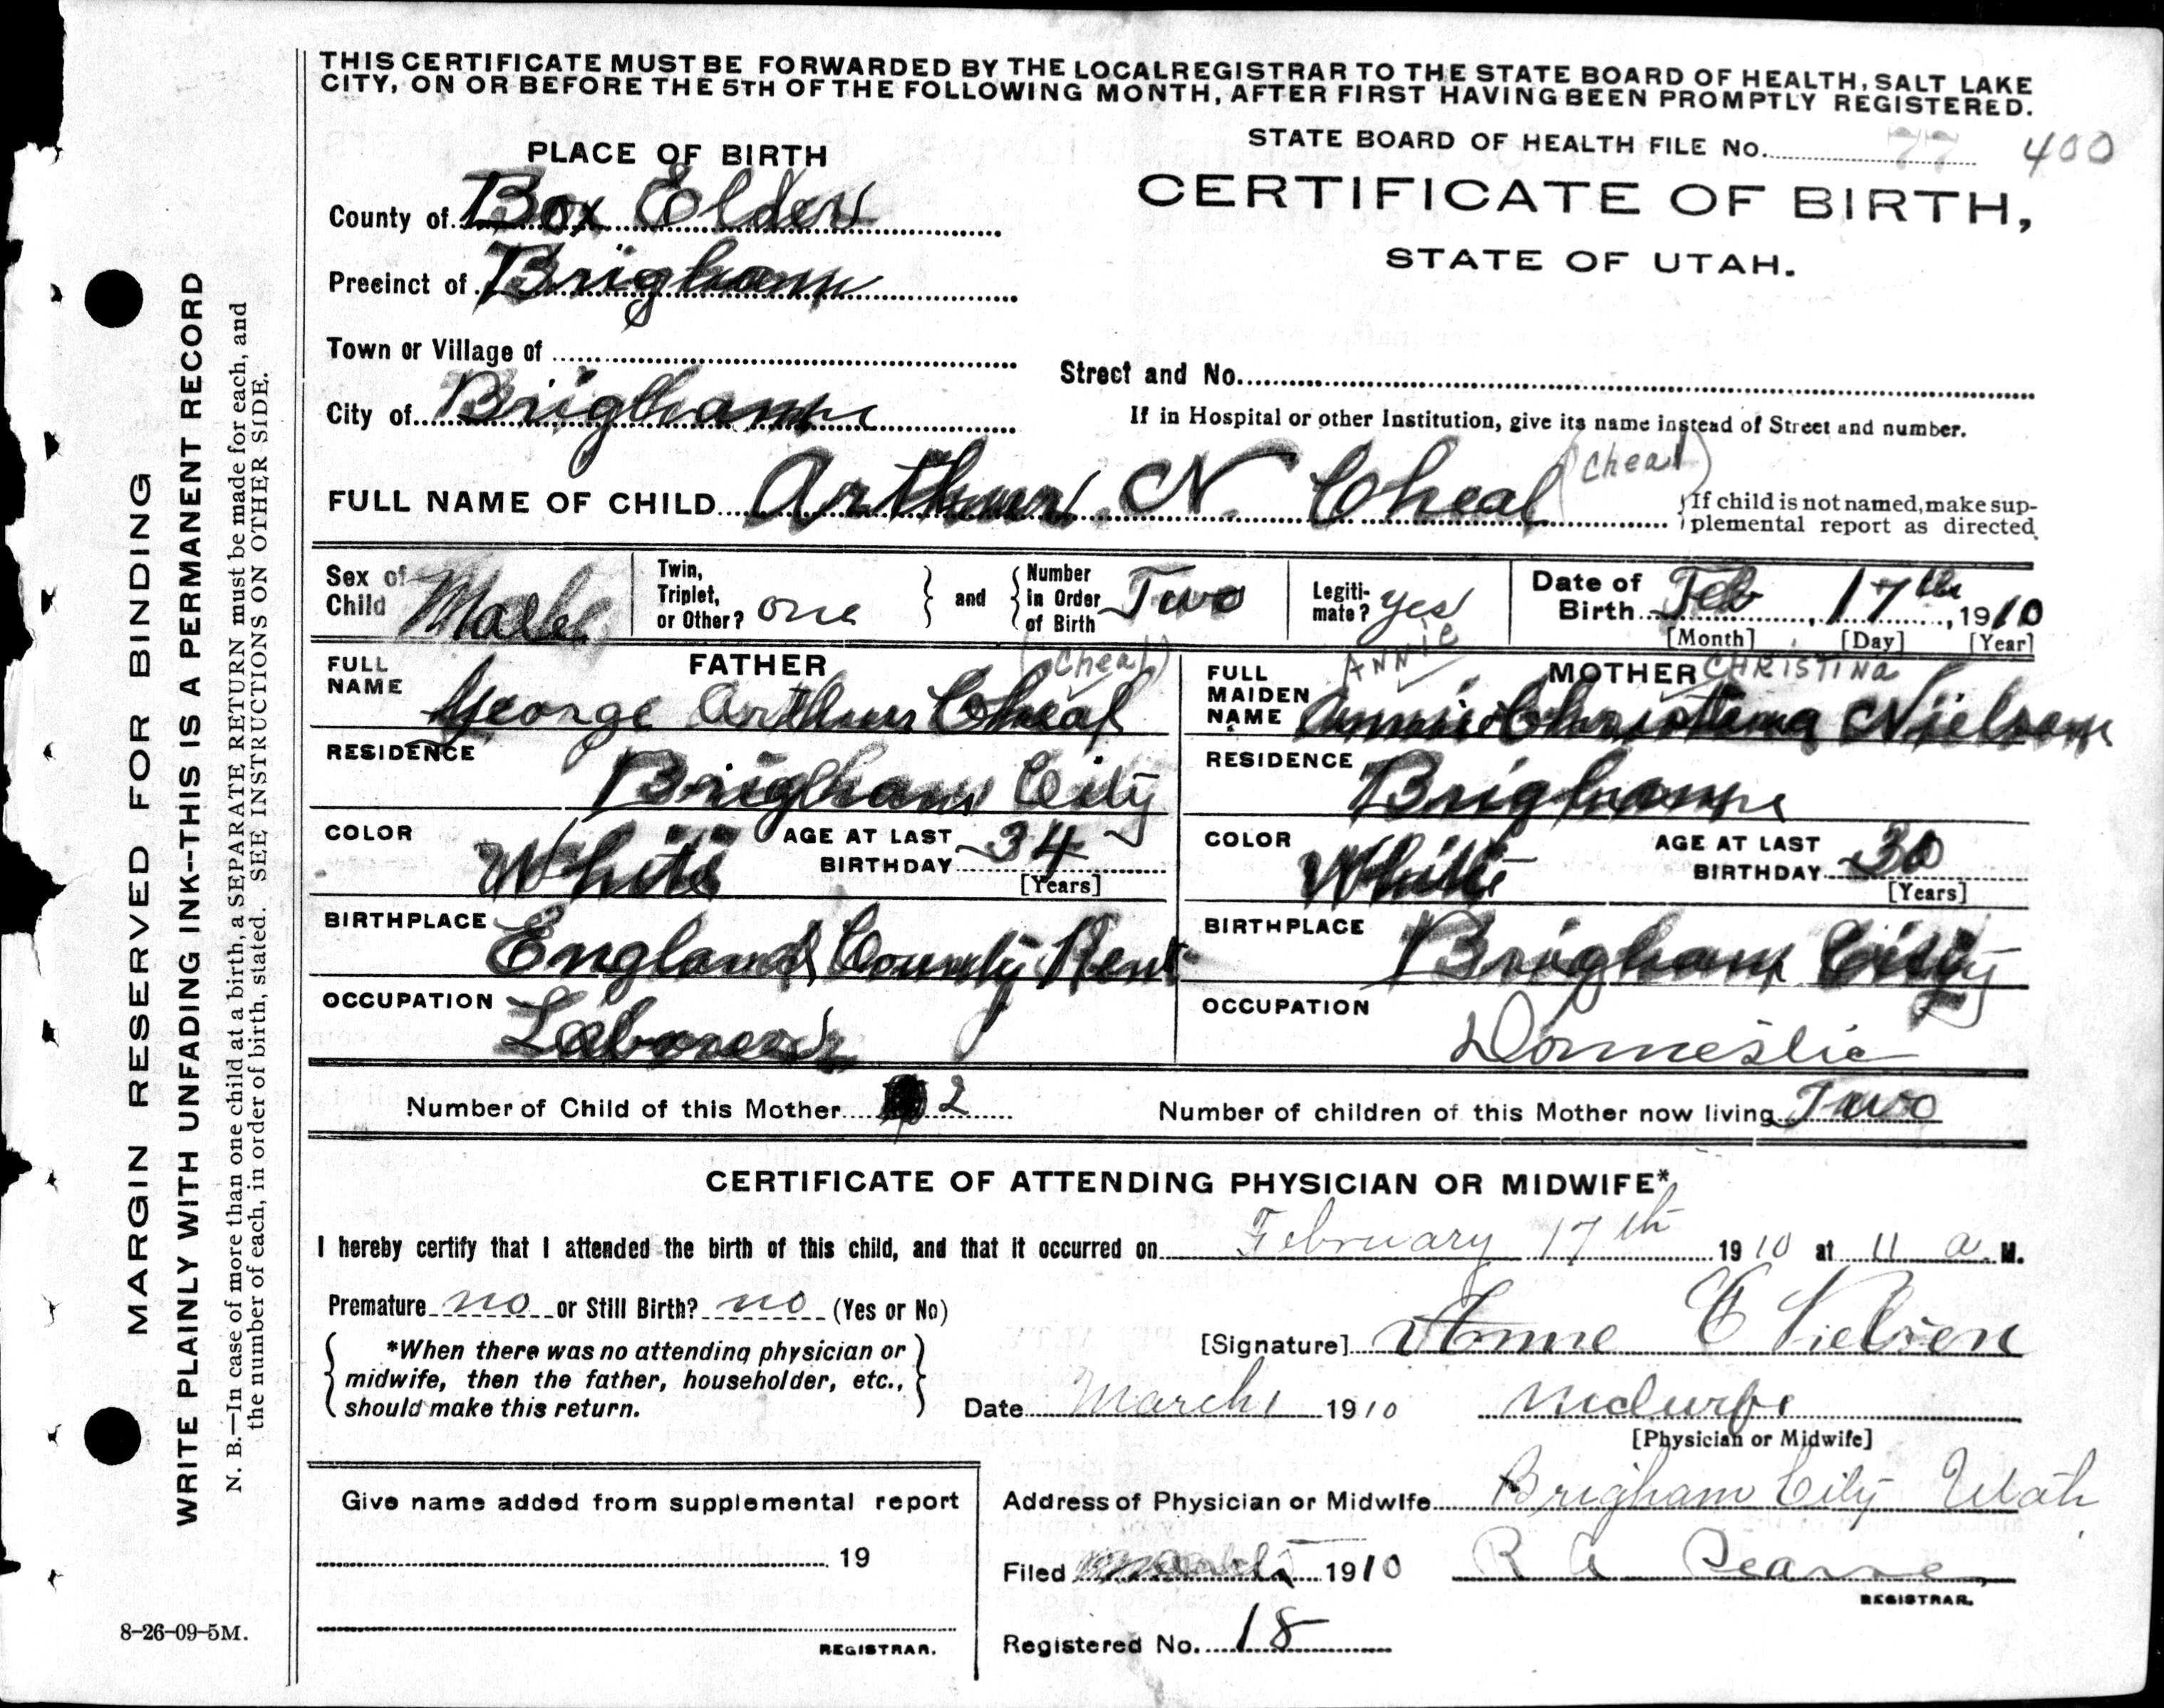 THIS CERTIFICATE MUST BE FORWARDED BY THE LOCAL REGISTRAR TO THE STATE BOARD OF HEALTH, SALT LAKE
CITY, ON OR BEFORE THE 5TH OF THE FOLLOWING MONTH, AFTER FIRST HAVING BEEN PROMPTLY REGISTERED.
STATE BOARD OF HEALTH FILE No. 77 400
PLACE OF BIRTH
CERTIFICATE OF BIRTH,
STATE OF UTAH.
County of Box Elder
Precinct of Brigham
Town or Village of
Street and No.
City of Brigham
If in Hospital or other Institution, give its name instead of Street and number.
(Cheal)
FULL NAME OF CHILD Arthur N. Cheal
If child is not named, make sup-
plemental report as directed
Sex of Child Male
Twin, Triplet, or Other? one and Number in Order of Birth Two
Legiti-mate? yes
Date of Birth Feb 17th, 1910
[Month] [Day] [Year]
FATHER
(Cheal)
FULL NAME George Arthur Cheal
MOTHER
ANNIE CHRISTINA
FULL MAIDEN NAME Annie Christina Nielsen
RESIDENCE Brigham City
RESIDENCE Brigham
COLOR White
AGE AT LAST BIRTHDAY 34 [Years]
COLOR White
AGE AT LAST BIRTHDAY 30 [Years]
BIRTHPLACE England County Kent
BIRTHPLACE Brigham City
OCCUPATION Laborer
OCCUPATION Domestic
Number of Child of this Mother 2
Number of children of this Mother now living Two
CERTIFICATE OF ATTENDING PHYSICIAN OR MIDWIFE*
I hereby certify that I attended the birth of this child, and that it occurred on February 17th 1910 at 11 a. M.
Premature no or Still Birth? no (Yes or No)
*When there was no attending physician or
midwife, then the father, householder, etc.,
should make this return.
[Signature] Anne C Nielsen
Date March 1 1910
Midwife
[Physician or Midwife]
Give name added from supplemental report
19
REGISTRAR.
Address of Physician or Midwife Brigham City Utah
Filed March 1910
R A Pearse
REGISTRAR.
Registered No. 18
MARGIN RESERVED FOR BINDING
WRITE PLAINLY WITH UNFADING INK--THIS IS A PERMANENT RECORD
N. B.—In case of more than one child at a birth, a SEPARATE RETURN must be made for each, and
the number of each, in order of birth, stated. SEE INSTRUCTIONS ON OTHER SIDE.
8-26-09-5M.